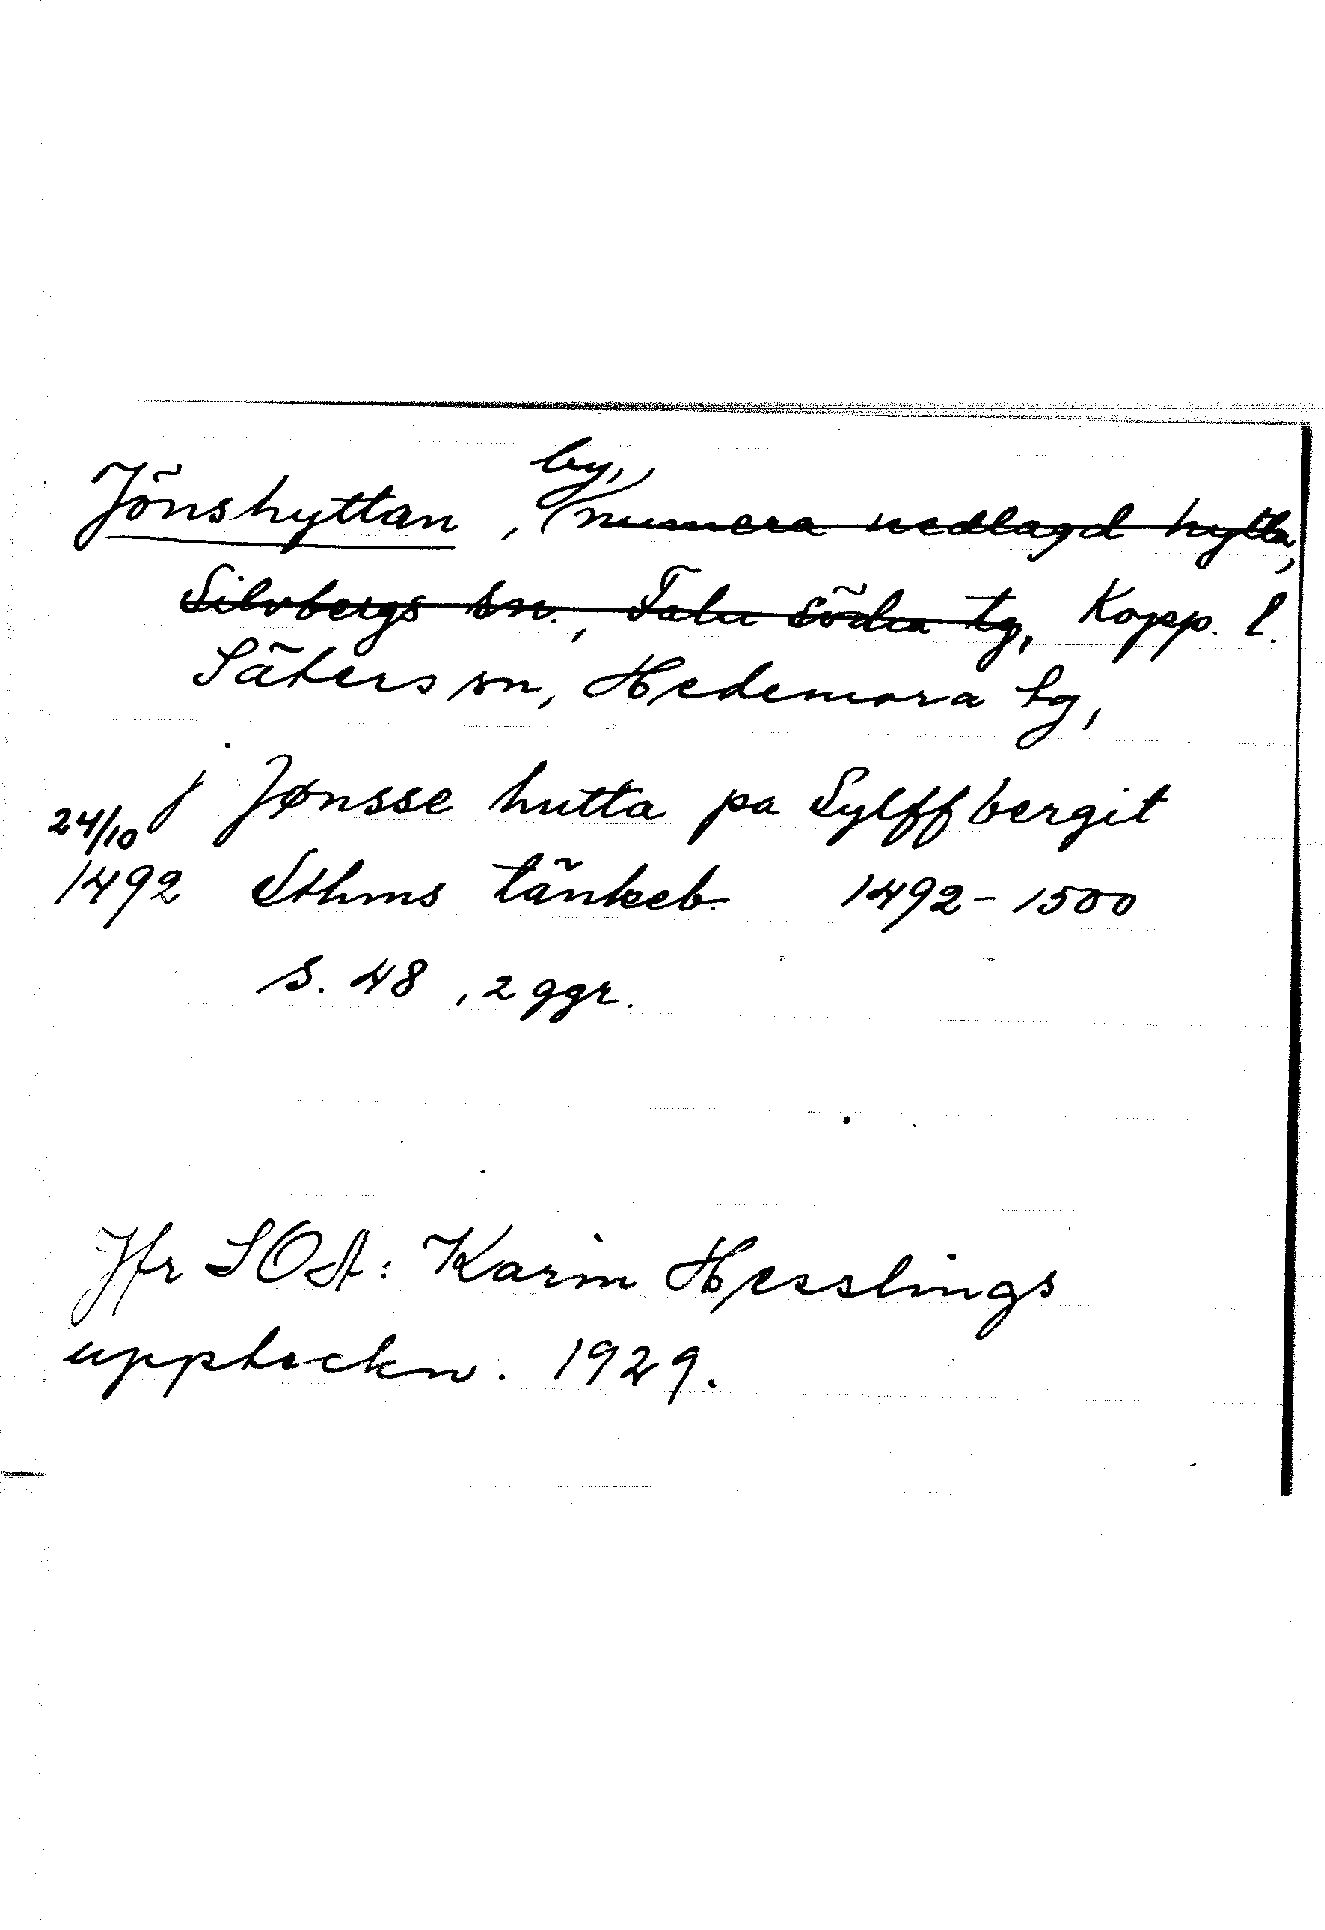 by,
Jönshyttan, (numera nedlagd hytta,
Silvbergs sn., Falu Södra tg, Kopp. l.
Säters sn, Hedemora tg,
j Jønsse hutta pa Sylffbergit
24/10
1492 Sthms tänkeb. 1492-1500
s. 48, 2 ggr.
Jfr SOA: Karin Hesslings
uppteckn. 1929.